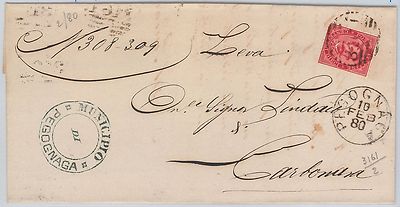 2/80
N° 308-309
Leva
On.le Signor Sindaco
di
Carbonara
MUNICIPIO
DI
PEGOGNAGA
PEGOGNAGA
10
FEB
80
3161
2